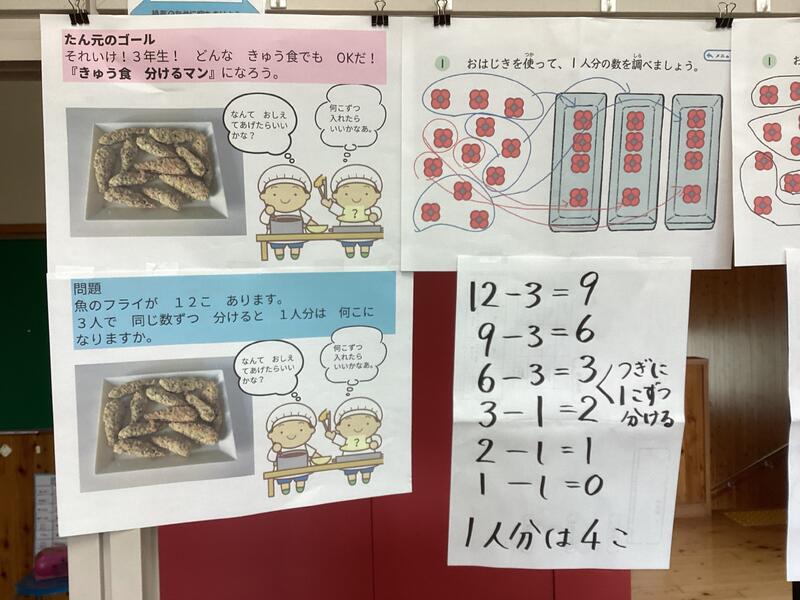 たん元のゴール
それいけ！３年生！　どんな　きゅう食でも　OKだ！
『きゅう食　分けるマン』になろう。
なんて　おしえ
てあげたらいい
かな？
何こずつ
入れたら
いいかなあ。
?
問題
魚のフライが　１２こ　あります。
３人で　同じ数ずつ　分けると　１人分は　何こに
なりますか。
なんて　おしえ
てあげたらいい
かな？
何こずつ
入れたら
いいかなあ。
?
1 おはじきを使って、1人分の数を調べましょう。
つか
しら
12－3＝9
9－3＝6
6－3＝3
3－1＝2
2－1＝1
1－1＝0
つぎに
1こずつ
分ける
1人分は4こ
1
お